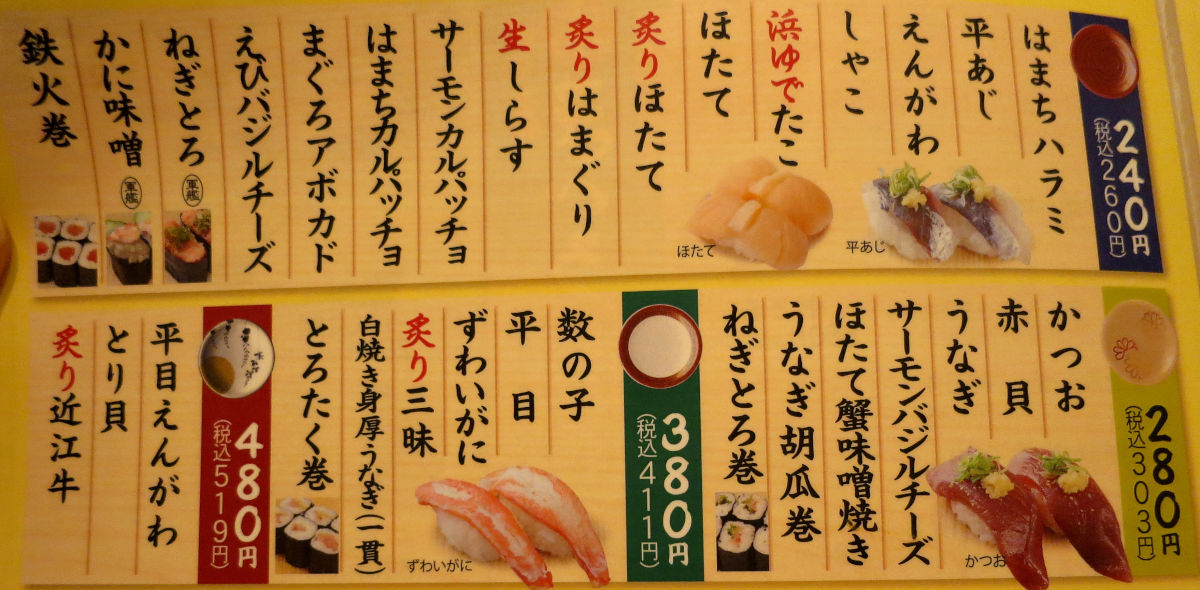 240円
(税込260円)
はまちハラミ
平あじ
えんがわ
しゃこ
浜ゆでたこ
ほたて
炙りほたて
炙りはまぐり
生しらす
サーモンカルパッチョ
はまちカルパッチョ
まぐろアボカド
えびバジルチーズ
ねぎとろ 軍艦
かに味噌 軍艦
鉄火巻
平あじ
ほたて
280円
(税込303円)
かつお
赤貝
うなぎ
サーモンバジルチーズ
ほたて蟹味噌焼き
うなぎ胡瓜巻
ねぎとろ巻
かつお
380円
(税込411円)
数の子
平目
ずわいがに
炙り三昧
白焼き身厚うなぎ(一貫)
とろたく巻
ずわいがに
480円
(税込519円)
平目えんがわ
とり貝
炙り近江牛